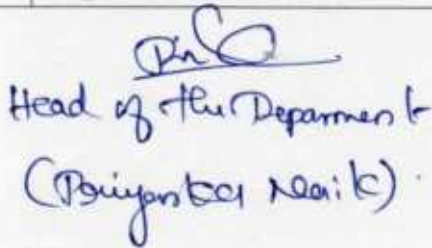 Head of the Deparment
(Priyanka Naik)